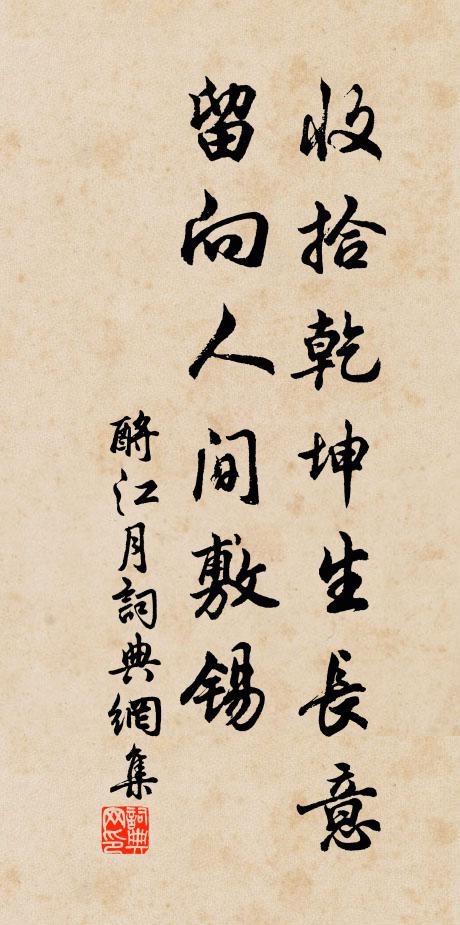 收拾乾坤生長意
留向人間敷錫
酹江月詞典網集
詞典
网印